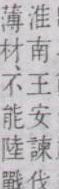 淮南王安諫伐
薄材不能陸戰